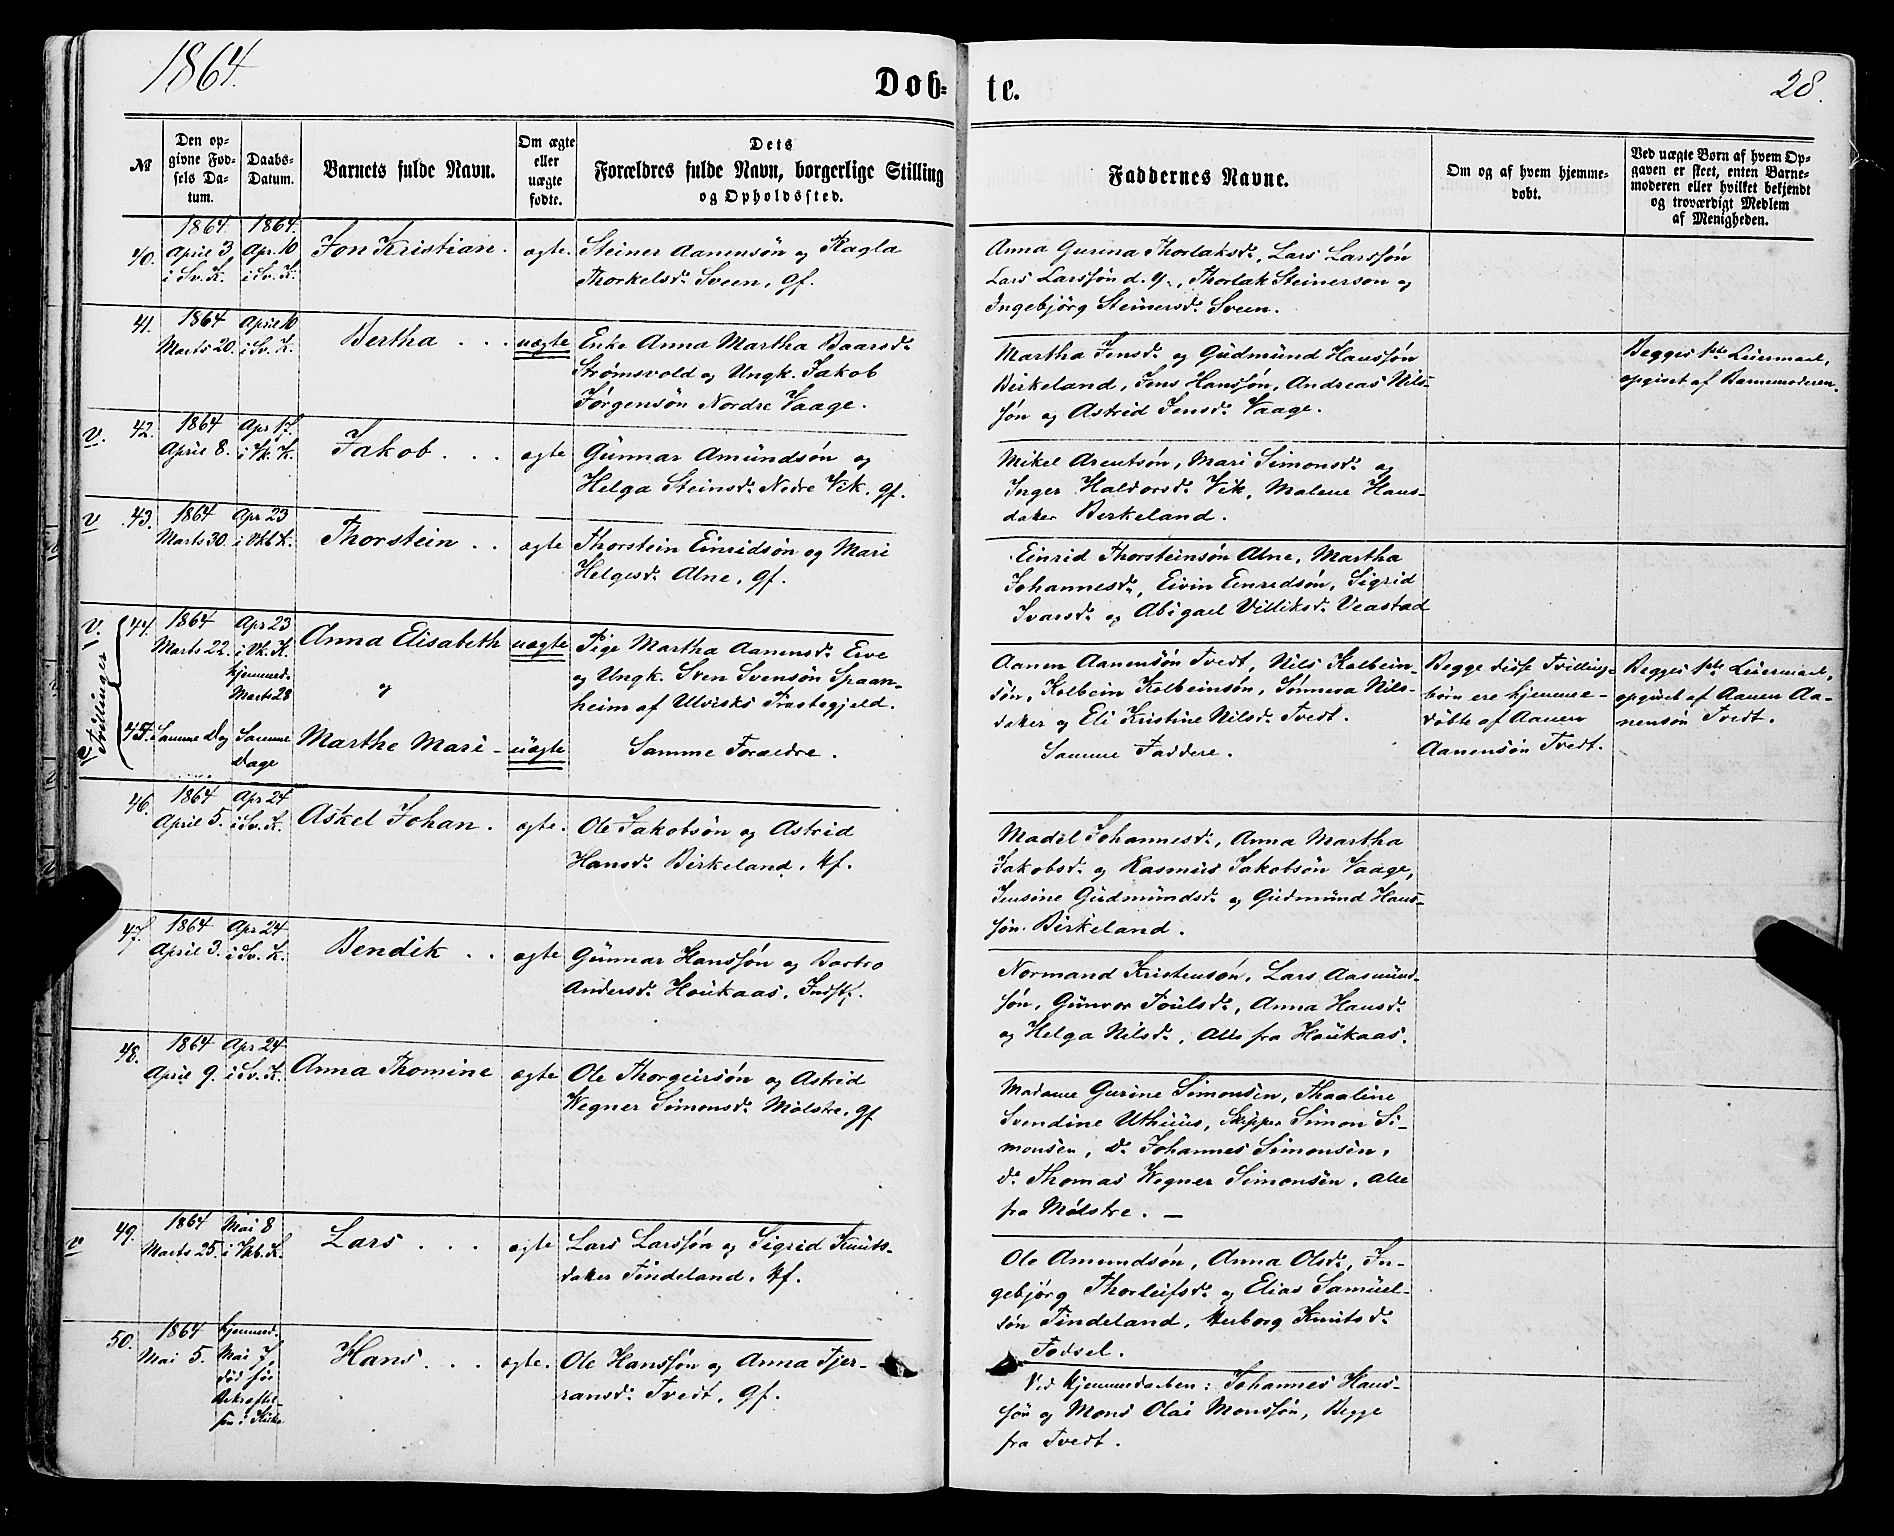 1864.
Døb-
te.
28.
№
Den op-
givne Fød-
sels Da-
tum.
Daabs-
Datum.
Barnets fulde Navn.
Om ægte
eller
uægte
fødte.
Dets
Forældres fulde Navn, borgerlige Stilling
og Opholdssted.
Faddernes Navne.
Om og af hvem hjemme-
døbt.
Ved uægte Børn af hvem Op-
gaven er skeet, enten Barne-
moderen eller hvilket bekjendt
og troværdigt Medlem
af Menigheden.
40.
1864.
April 3,
i Sv. K.
1864.
Apr. 10
i Sv. K.
Jon Kristian.
ægte.
Steiner Aanensøn og Ragla
Thorkelsd. Sveen, gf.
Anna Gurina Thorlaksd., Lars Larssøn
Lars Larssøn d. y., Thorlak Steinerson og
Ingebjörg Steinersd. Sveen.
41.
1864
Marts 20.
April 10
i Sv. K.
Bertha . . .
uægte
Enke Anna Martha Baarsd.
Strömsvold og Ungk. Jakob
Jørgensön Nordre Vaage.
Martha Jensd. og Gudmund Hanssøn
Birkeland, Jens Hanssøn, Andreas Nils-
søn og Astrid Jensd. Vaage.
Begges 1ste Leiermaal,
opgivet af Barnemoderen.
v.
42.
1864
April 8.
Apr 17.
i Vk. K.
Jakob . . .
ægte
Gunnar Amundsön og
Helga Steinsd. Nedre Vik, gf.
Mikel Arentsøn, Mari Simonsd. og
Inger Haldorsd. Vik, Malene Hans-
dater Birkeland.
v
43.
1864
Marts 30.
Apr 23
i Vkb K.
Thorstein . .
ægte
Thorstein Einridsön og Mari
Helgesd. Alne, gf.
Einrid Thorsteinsøn Alne, Martha
Johannesd., Eivin Einredsøn, Sigrid
Ivarsd. og Abigael Villiksd. Veastad
v.
Tvillinger
44.
1864
Marts 22.
Apr 23
i Vk. K.
hjemmed.
Marts 28
Anna Elisabeth
og
uægte
Pige Martha Aanensd. Erve
og Ungk. Sven Svensön Spaan-
heim af Ulviks Præstegjeld.
Aanen Aanensön Tvedt, Nils Kolbein-
sön, Kolbein Kolbeinsön, Sönneva Nils-
dater og Eli Kristine Nilsd. Tvedt.
Begge disse Tvilling-
børn ere hjemme-
döbte af Aanen
Aanensön Tvedt.
Begges 1ste Leiermaal,
opgivet af Aanen Aa-
nensön Tvedt.
v
45.
Samme Dag
Samme
Dage
Marthe Mari -
uægte
Samme Forældre.
Samme Faddere.
46.
1864
April 5.
Apr 24
i Sv. K.
Askel Johan.
ægte.
Ole Jakobsön og Astrid
Hansd. Birkeland, kf.
Madel Johannesd., Anna Martha
Jakobsd. og Rasmus Jakobsön Vaage,
Jensine Gudmundsd. og Gudmund Hans-
søn Birkeland.
47.
1864
April 3.
Apr 24
i Sv. K.
Bendik . .
ægte
Gunnar Hanssøn og Barbro
Andersd. Houkaas, Indst.
Normand Kristensøn, Lars Aasmund-
søn, Gunvor Poulsd., Anna Hansd.
og Helga Nilsd., Alle fra Houkaas.
48.
1864
April 9.
Apr 24
i Sv. K.
Anna Thomine
ægte
Ole Thorgeirsön og Astrid
Wegner Simonsd. Mölstre, gf
Madame Gurine Simonsen, Thaaline
Svendine Uthuus, Skipper Simon Si-
monsen, Do Johannes Simonsen,
do Thomas Wegner Simonsen, alle
fra Mölstre. —
v
49.
1864
Marts 25.
Mai 8
i Vkb. K.
Lars . . .
ægte
Lars Larssøn og Sigrid Knuts-
dater Tindeland, kf.
Ole Amundsøn, Anna Olsd., In-
gebjörg Thorleifsd. og Elias Samuel-
søn Tindeland, Herborg Knutsd.
Fodsel.
50.
1864
Mai 5.
hjemmed.
Mai 7,
död för
Bekræftel-
sen i Kirke
Hans . . .
ægte.
Ole Hanssøn og Anna Tjer-
ransd. Tvedt, gf.
Ved Hjemmedaaben: Johannes Hans-
søn og Mons Olai Monssøn, Begge
fra Tvedt.